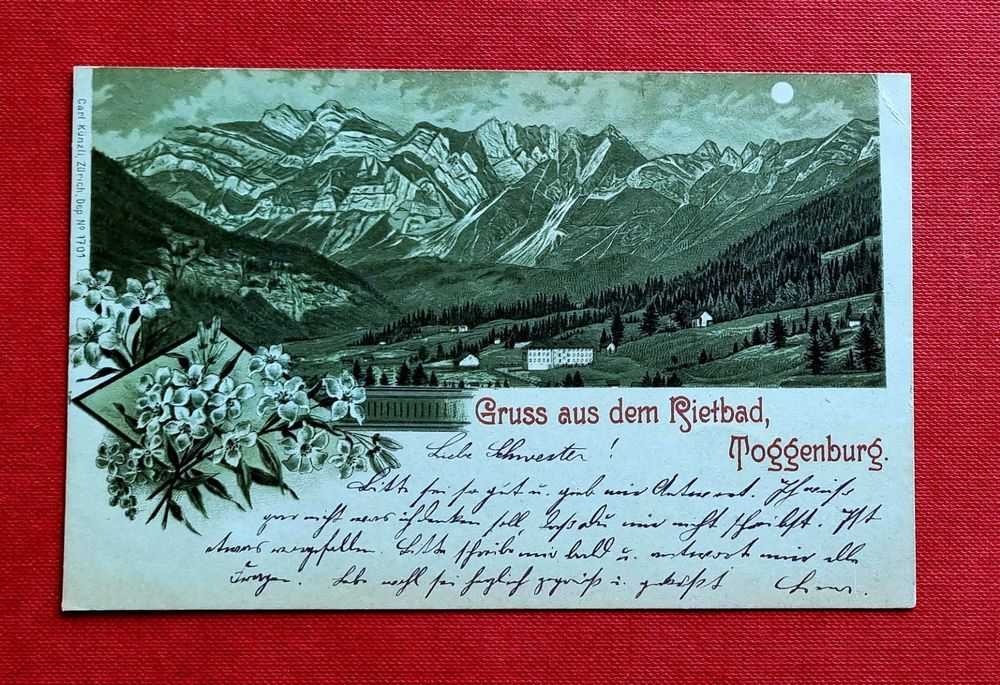 Carl Künzli, Zürich, Dep. Nº 1701
Gruss aus dem Rietbad,
Toggenburg.
Liebe Schwester!
Bitte sei so gut u. gieb mir Antwort. Ich weiß
gar nicht was ich denken soll, daß du mir nicht schreibst. Ist
etwas vorgefallen. Bitte schreibe mir bald u. antworte mir alle
Fragen. Lebe wohl sei herzlich gegrüßt u. geküßt